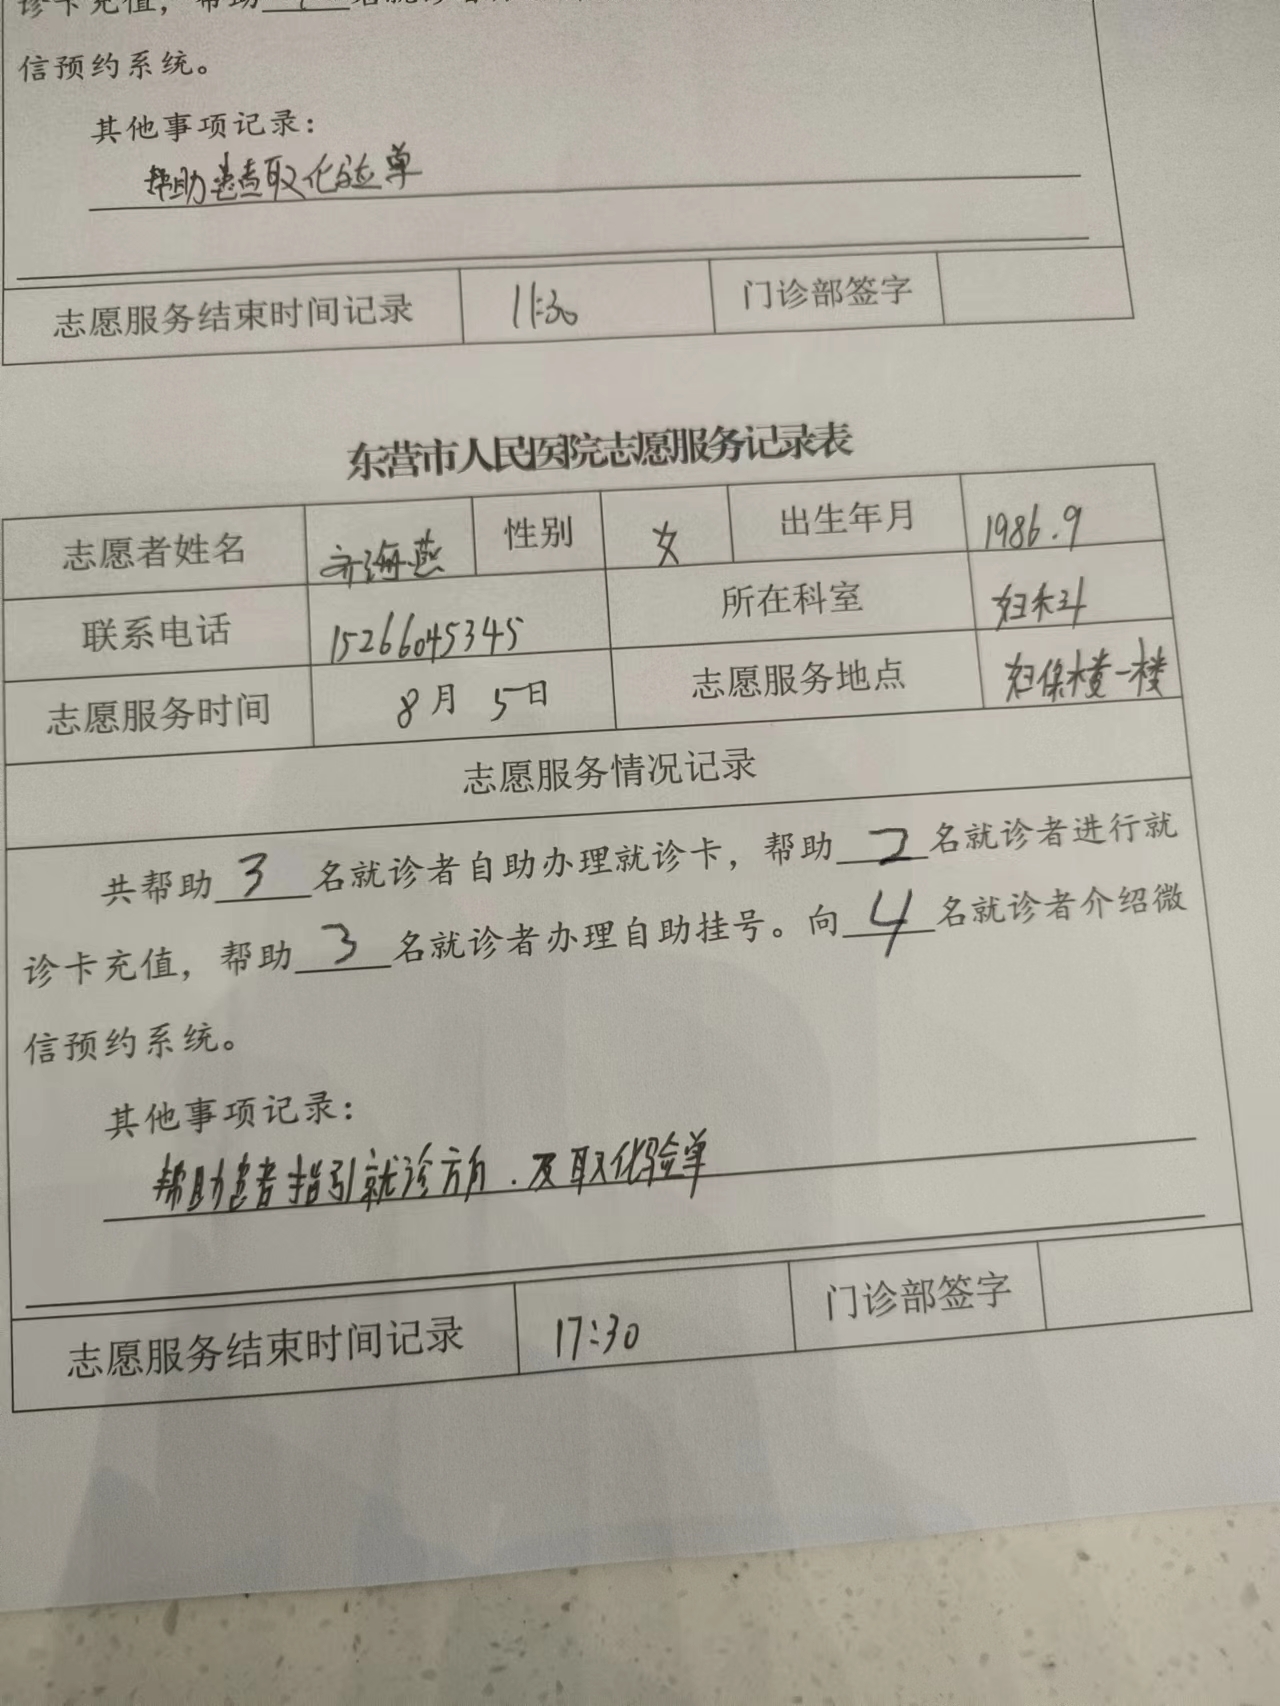 诊卡充值，帮助
信预约系统。
其他事项记录：
帮助患者取化验单
志愿服务结束时间记录 11:30 门诊部签字
东营市人民医院志愿服务记录表
志愿者姓名 齐海燕 性别 女 出生年月 1986.9
联系电话 15266045345 所在科室 妇科
志愿服务时间 8月 5日 志愿服务地点 妇保楼一楼
志愿服务情况记录
共帮助3名就诊者自助办理就诊卡，帮助2名就诊者进行就
诊卡充值，帮助3名就诊者办理自助挂号。向4名就诊者介绍微
信预约系统。
其他事项记录：
帮助患者指引就诊方向.及取化验单
志愿服务结束时间记录 17:30 门诊部签字